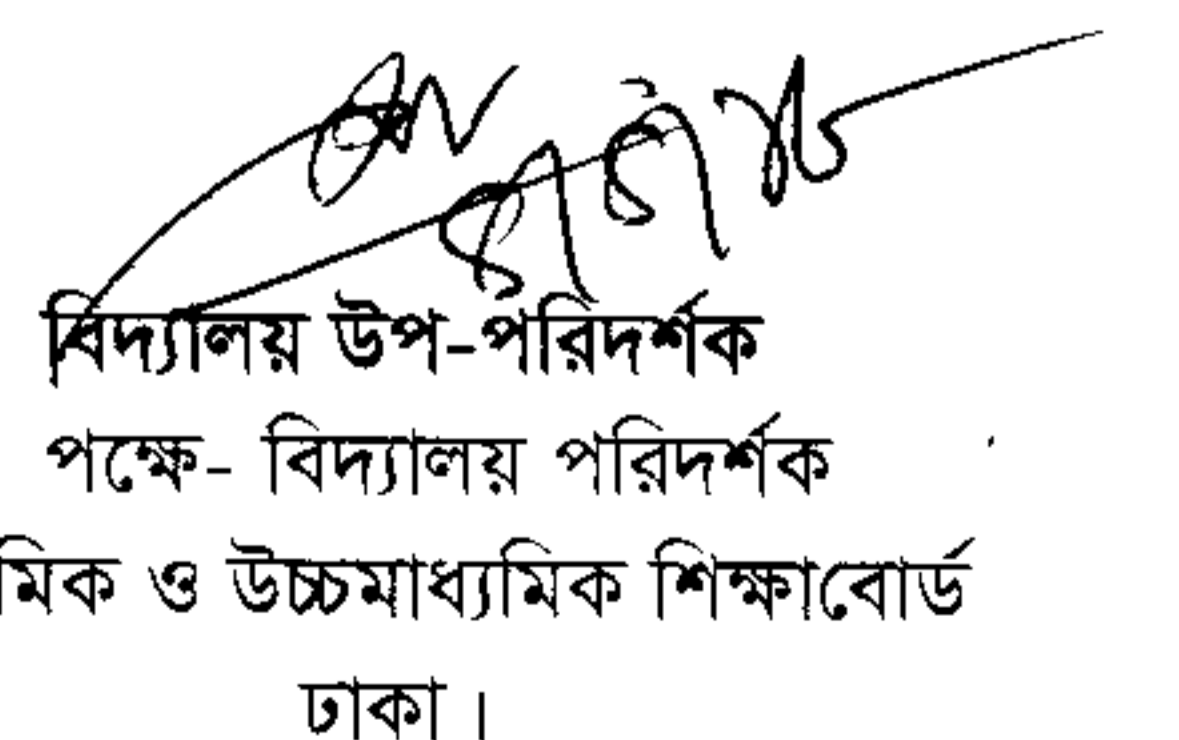 বিদ্যালয় উপ-পরিদর্শক
পক্ষে- বিদ্যালয় পরিদর্শক
মিক ও উচ্চমাধ্যমিক শিক্ষাবোর্ড
ঢাকা ।